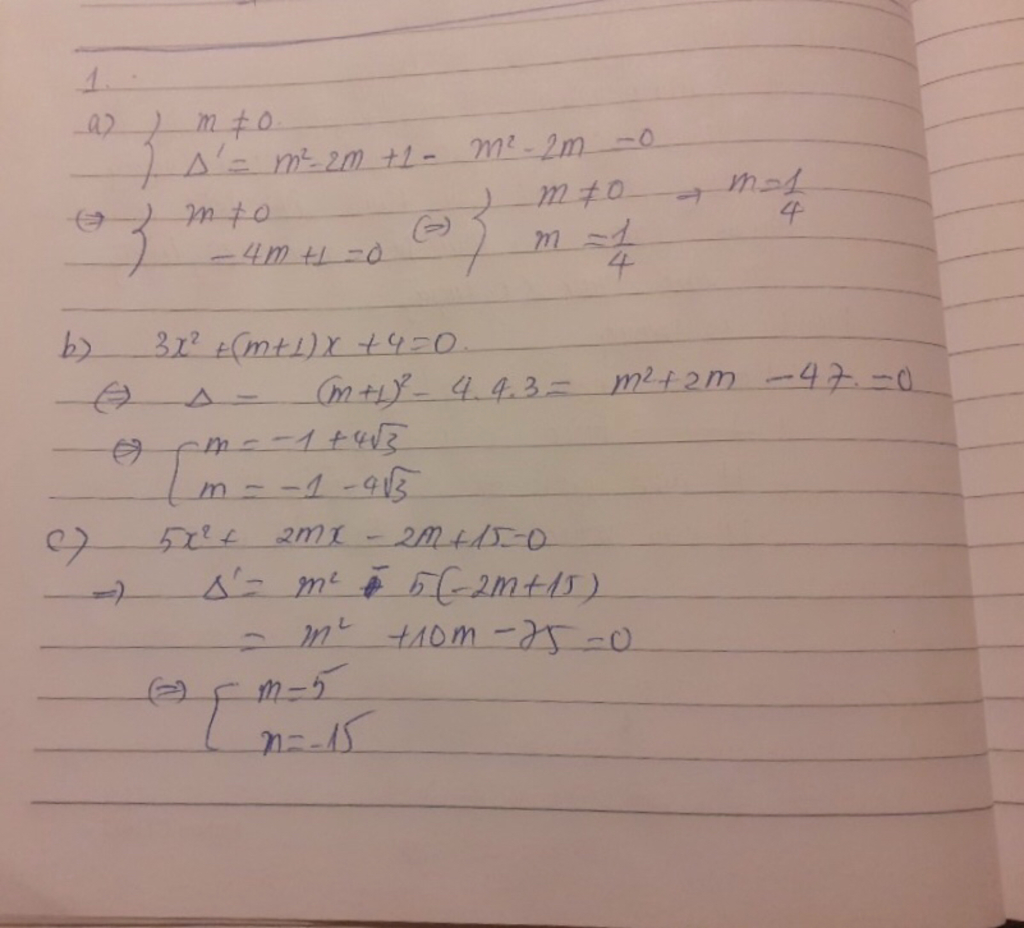 1.
a) { m ≠ 0
Δ' = m² - 2m + 1 - m² - 2m = 0
⇔ { m ≠ 0 ⇔ { m ≠ 0 → m = 1/4
-4m + 1 = 0 m = 1/4
b) 3x² + (m+1)x + 4 = 0.
⇔ Δ = (m+1)² - 4.4.3 = m² + 2m - 47 = 0
⇔ [ m = -1 + 4√3
m = -1 - 4√3
c) 5x² + 2mx - 2m + 15 = 0
⇒ Δ' = m² - 5(-2m + 15)
= m² + 10m - 75 = 0
⇔ [ m = 5
m = -15